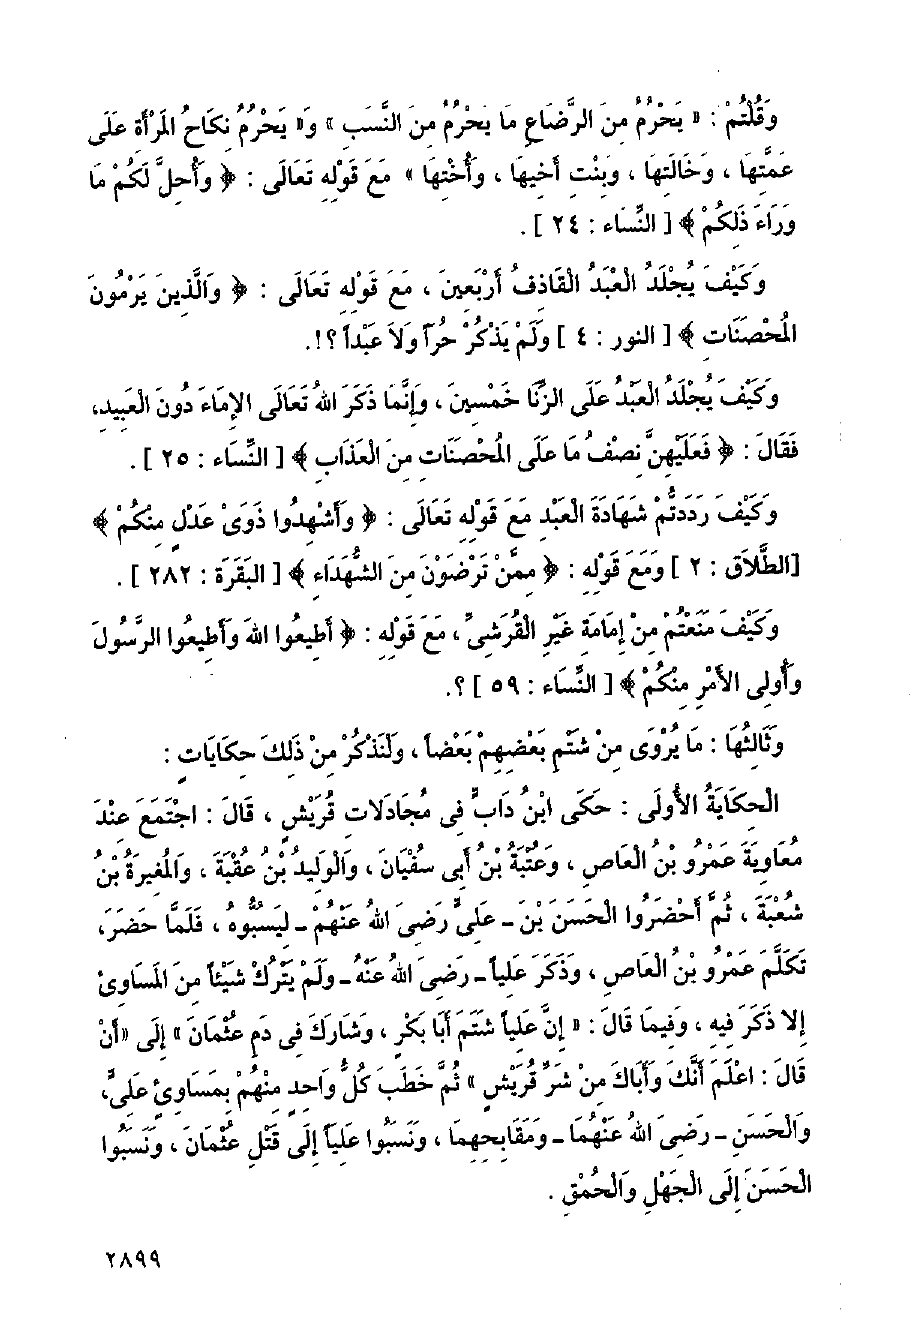 وَقُلْتُمْ : « يَحْرُمُ مِنَ الرَّضَاعِ مَا يَحْرُمُ مِنَ النَّسَبِ » وَ« يَحْرُمُ نِكَاحُ المَرْأَةِ عَلَى
عَمَّتِهَا ، وَخَالَتِهَا ، وَبِنْتِ أَخِيهَا ، وَأُخْتِهَا » مَعَ قَوْلِهِ تَعَالَى : ﴿ وَأُحِلَّ لَكُمْ مَا
وَرَاءَ ذَلِكُمْ ﴾ [ النِّسَاء : ٢٤ ] .
وَكَيْفَ يُجْلَدُ الْعَبْدُ الْقَاذِفُ أَرْبَعِينَ ، مَعَ قَوْلِهِ تَعَالَى : ﴿ وَالَّذِينَ يَرْمُونَ
الْمُحْصَنَاتِ ﴾ [ النور : ٤ ] وَلَمْ يَذْكُرْ حُرّاً وَلاَ عَبْداً ؟!.
وَكَيْفَ يُجْلَدُ الْعَبْدُ عَلَى الزِّنَا خَمْسِينَ ، وَإِنَّمَا ذَكَرَ اللهُ تَعَالَى الإِمَاءَ دُونَ الْعَبِيدِ،
فَقَالَ : ﴿ فَعَلَيْهِنَّ نِصْفُ مَا عَلَى الْمُحْصَنَاتِ مِنَ الْعَذَابِ ﴾ [ النِّسَاء : ٢٥ ] .
وَكَيْفَ رَدَدتُّمْ شَهَادَةَ الْعَبْدِ مَعَ قَوْلِهِ تَعَالَى : ﴿ وَأَشْهِدُوا ذَوَىْ عَدْلٍ مِنْكُمْ ﴾
[الطَّلاَق : ٢ ] وَمَعَ قَوْلِهِ : ﴿ مِمَّنْ تَرْضَوْنَ مِنَ الشُّهَدَاءِ ﴾ [ البَقَرَة : ٢٨٢ ] .
وَكَيْفَ مَنَعْتُمْ مِنْ إِمَامَةِ غَيْرِ الْقُرَشِىِّ ، مَعَ قَوْلِهِ : ﴿ أَطِيعُوا اللهَ وَأَطِيعُوا الرَّسُولَ
وَأُولِى الأَمْرِ مِنْكُمْ ﴾ [ النِّسَاء : ٥٩ ] ؟.
وَثَالِثُهَا : مَا يُرْوَى مِنْ شَتْمِ بَعْضِهِمْ بَعْضاً ، وَلْنَذْكُرْ مِنْ ذَلِكَ حِكَايَاتٍ :
الْحِكَايَةُ الأُولَى : حَكَى ابْنُ دَابٍ فِى مُجَادَلاتِ قُرَيْشٍ ، قَالَ : اجْتَمَعَ عِنْدَ
مُعَاوِيَةَ عَمْرُو بْنُ الْعَاصِ ، وَعُتْبَةُ بْنُ أَبِى سُفْيَانَ ، وَالْوَلِيدُ بْنُ عُقْبَةَ ، وَالْمُغِيرَةُ بْنُ
شُعْبَةَ ، ثُمَّ أَحْضَرُوا الْحَسَنَ بْنَ - عَلِىٍّ رَضِىَ اللهُ عَنْهُمْ - لِيَسُبُّوهُ ، فَلَمَّا حَضَرَ،
تَكَلَّمَ عَمْرُو بْنُ الْعَاصِ ، وَذَكَرَ عَلِياً - رَضِىَ اللهُ عَنْهُ - وَلَمْ يَتْرُكْ شَيْئاً مِنَ الْمَسَاوِئِ
إِلا ذَكَرَ فِيهِ ، وَفِيمَا قَالَ : « إِنَّ عَلِياً شَتَمَ أَبَا بَكْرٍ ، وَشَارَكَ فِى دَمِ عُثْمَانَ » إِلَى «أَنْ
قَالَ : اعْلَمْ أَنَّكَ وَأَبَاكَ مِنْ شَرِّ قُرَيْشٍ » ثُمَّ خَطَبَ كُلُّ وَاحِدٍ مِنْهُمْ بِمَسَاوِئِ عَلِىٍّ،
وَالْحَسَنِ - رَضِىَ اللهُ عَنْهُمَا - وَمَقَابِحِهِمَا ، وَنَسَبُوا عَلِياً إِلَى قَتْلِ عُثْمَانَ ، وَنَسَبُوا
الْحَسَنَ إِلَى الْجَهْلِ وَالْحُمْقِ .
٢٨٩٩